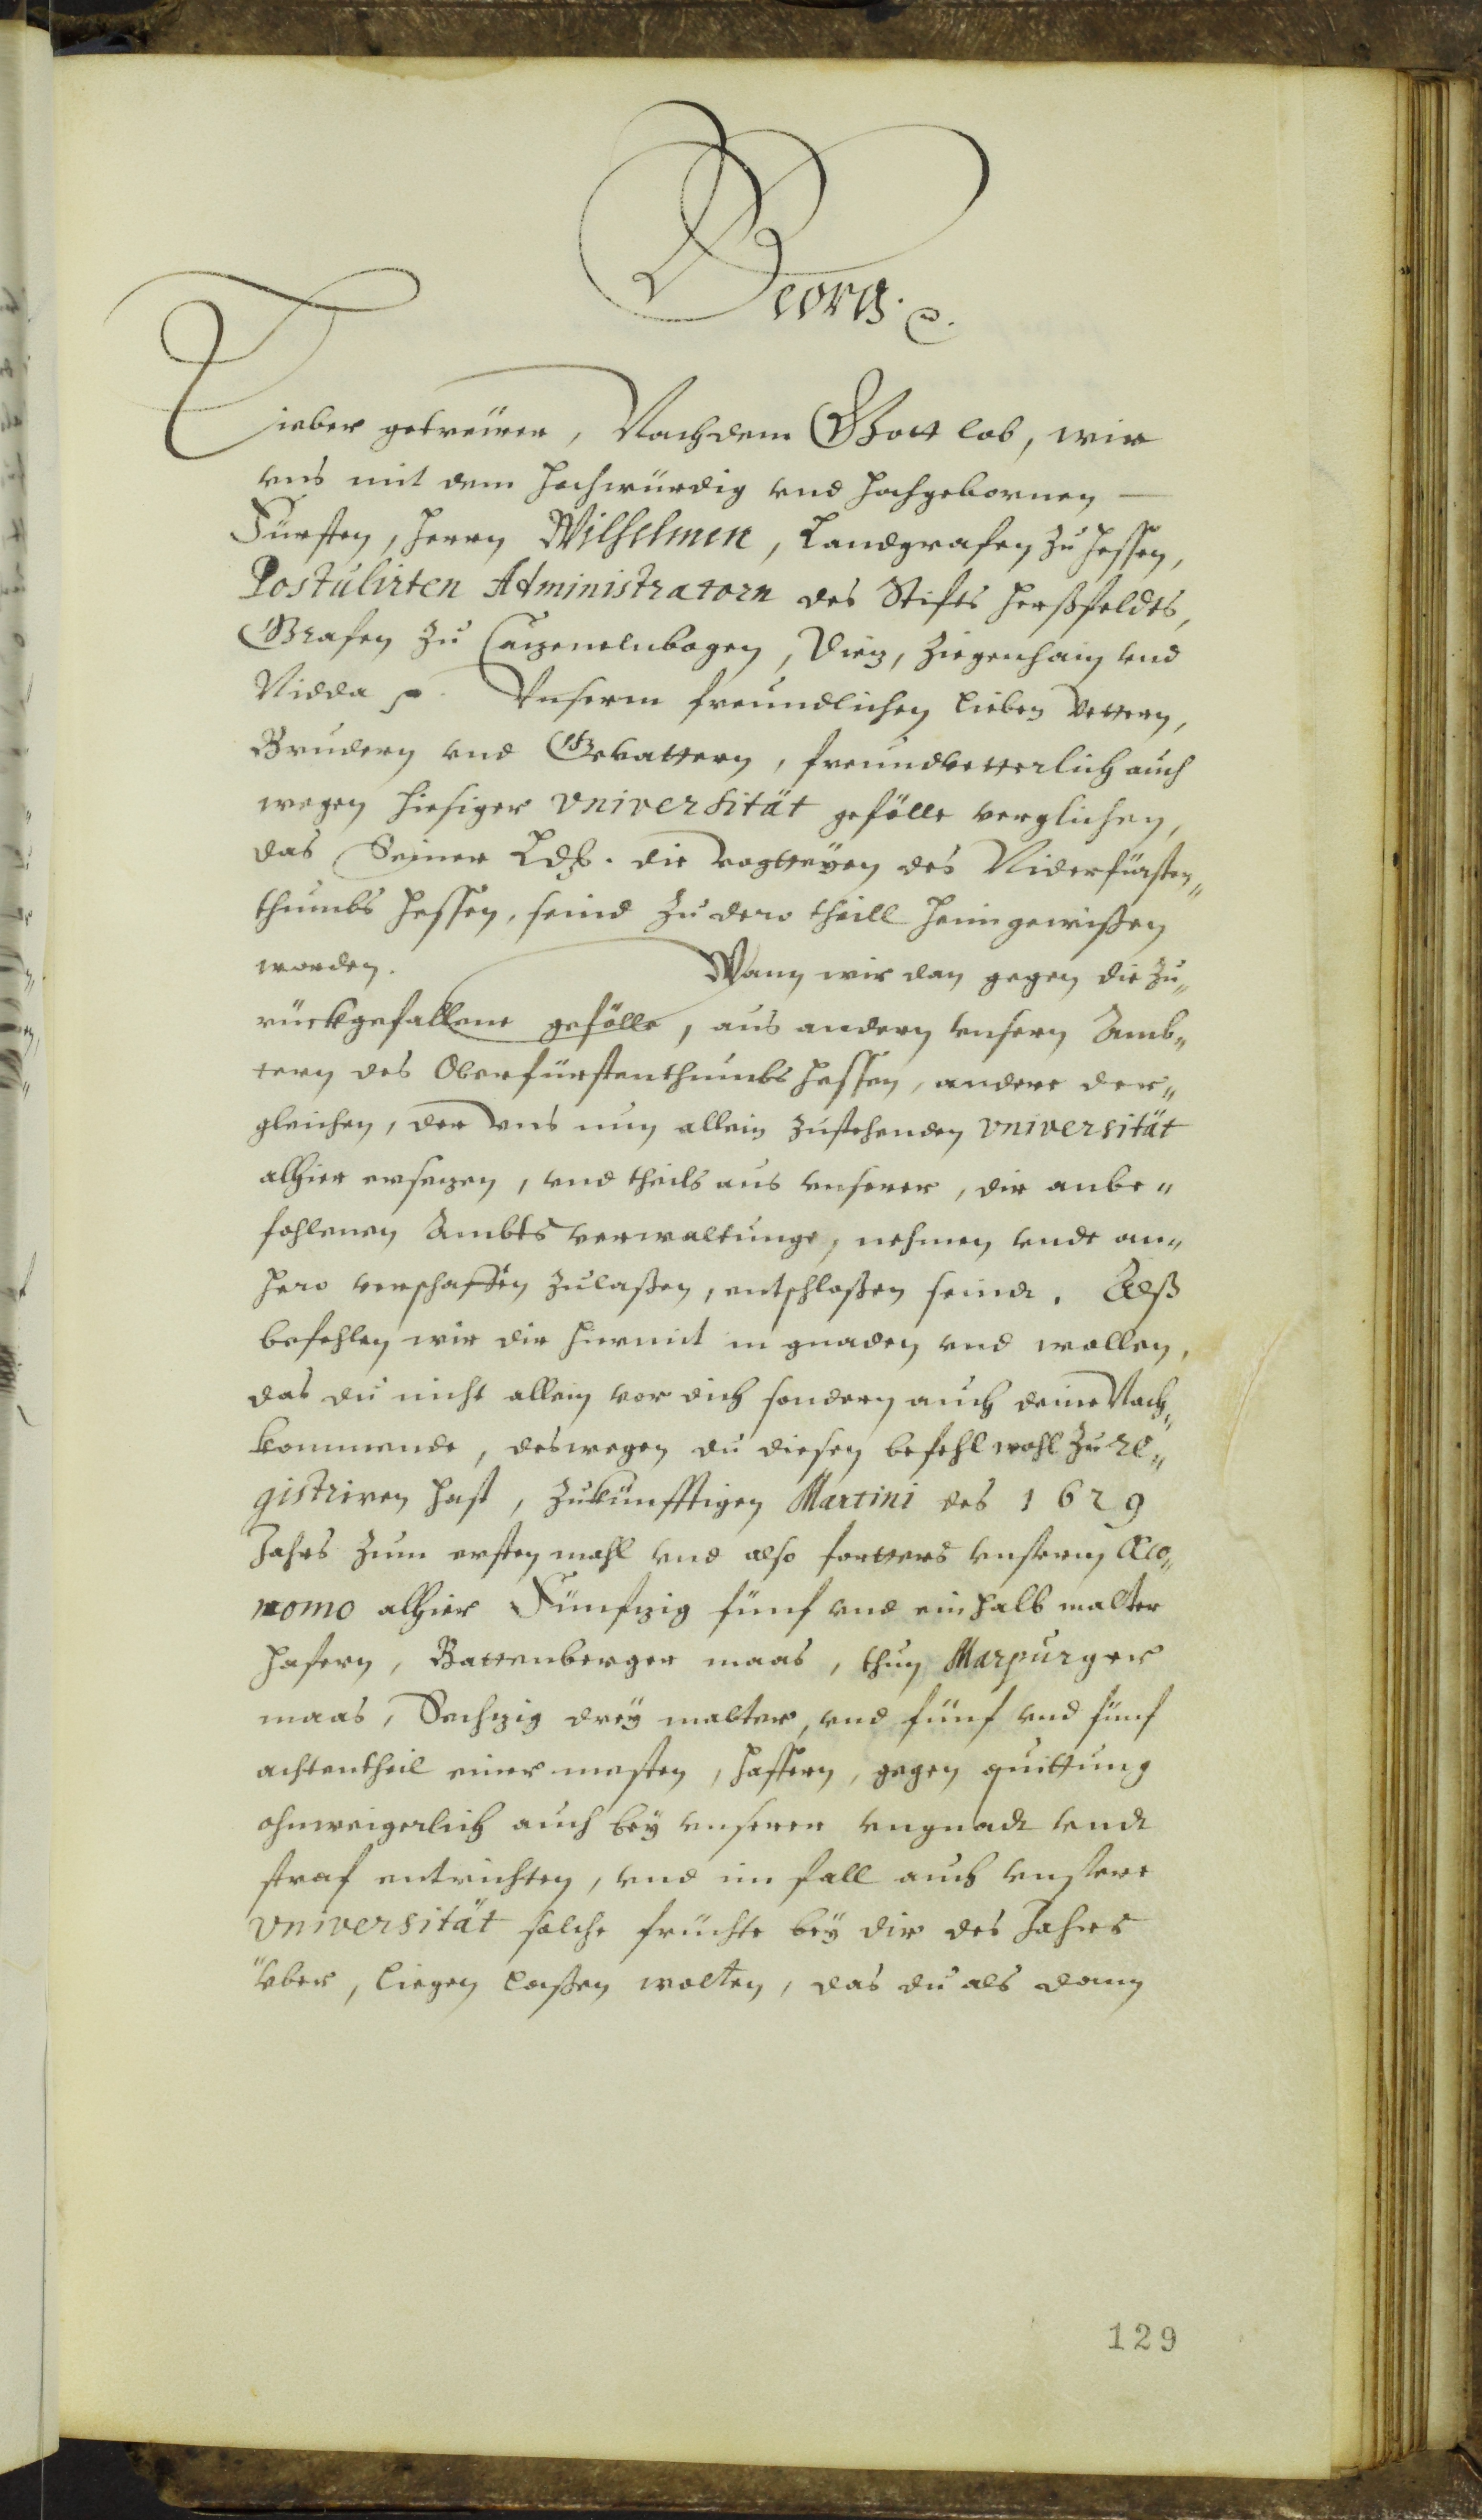 Georg. ꝛc.
Lieber getreüwer, Nachdem Gott lob, wir
vns mit dem hochwürdig vnd hochgebornen
Fürsten, Herrn Wilhelmen, Landgrafen zu Hessen,
Postulirten Administratorn des Stifts Herßfeldts,
Grafen zu Cazenelnbogen, Diez, Ziegenhain vnd
Nidda ꝛc. Vnserm freundlichen lieben Vettern,
Brudern vnd Gevattern, freundvetterlich auch
wegen hiesiger Vniversität gefölle verglichen,
das Seiner Ldh. die vogteyen des Niderfürsten„
thumbs Hessen, seind zu dero theill heimgewißen
worden. Wann wir dan gegen die zu„
rückgefallene gefölle, aus andern vnsern Amb„
tern des Oberfürstenthumbs Hessen, andere der„
gleichen, der vns nun allein zustehenden Vniversität
alhier ersezen, vnd theils aus vnserer, dir anbe„
fohlenen Ambts verwaltunge, nehmen vndt an„
hero verschaffen zulaßen, entschloßen seindt. Alß
befehlen wir dir hiermit in gnaden vnd wollen,
das du nicht allein vor dich sondern auch deine Nach„
kommende, deswegen du diesen befehl wohl zu re„
gistriren hast, zukünfftigen Martini des 1629
Jahrs zum ersten mahl vnd also fortters vnserm Œco„
nomo alhier Fünfzig fünf vnd ein halb malter
hafern, Battenberger maas, thun Marpurger
maas, Sechzig drey malter, vnd fünf vnd fünf
achtentheil einer mesten, haffern, gegen quittung
ohnweigerlich auch bey vnserer vngnadt vndt
straf entrichten, vnd im fall auch vnsere
Vniversität solche früchte bey dir des Jahrs
vber, liegen laßen wolten, das du als dann
129